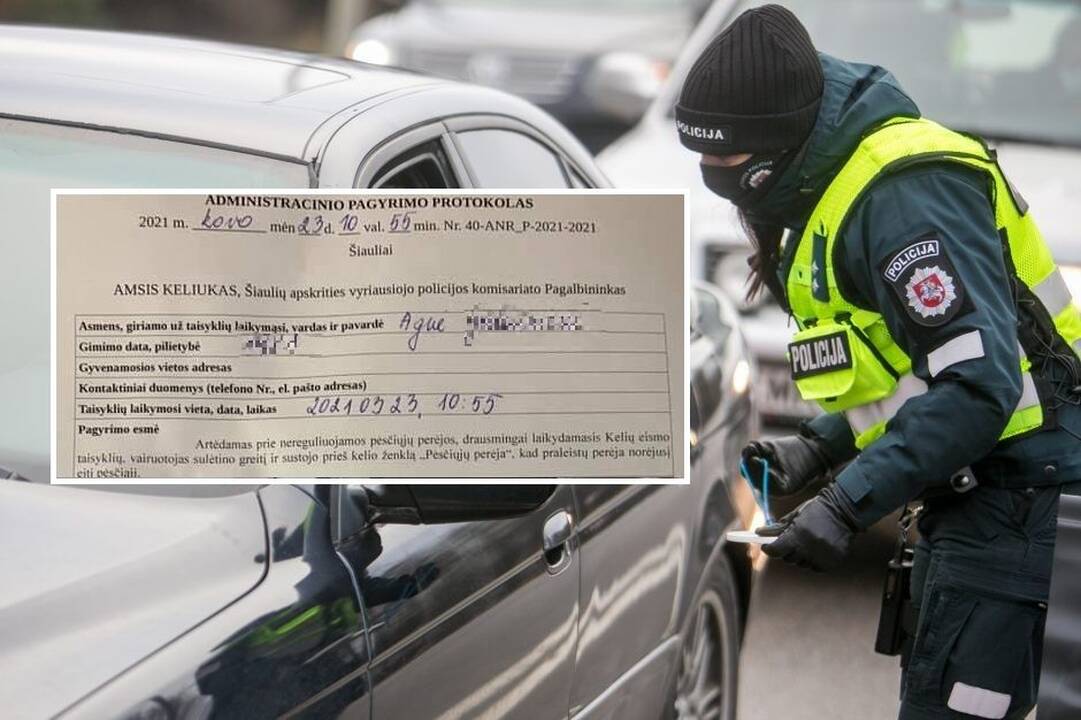 POLICIJA
POLICIJA
POLICIJA
ADMINISTRACINIO PAGYRIMO PROTOKOLAS
2021 m. kovo mėn 23 d. 10 val. 55 min. Nr. 40-ANR_P-2021-2021
Šiauliai
AMSIS KELIUKAS, Šiaulių apskrities vyriausiojo policijos komisariato Pagalbininkas
Asmens, giriamo už taisyklių laikymąsi, vardas ir pavardė Agnė
Gimimo data, pilietybė
Gyvenamosios vietos adresas
Kontaktiniai duomenys (telefono Nr., el. pašto adresas)
Taisyklių laikymosi vieta, data, laikas 2021 03 23, 10:55
Pagyrimo esmė
Artėdamas prie nereguliuojamos pėsčiųjų perėjos, drausmingai laikydamasis Kelių eismo
taisyklių, vairuotojas sulėtino greitį ir sustojo prieš kelio ženklą „Pėsčiųjų perėja“, kad praleistų perėja norėjusį
eiti pėsčiąjį.